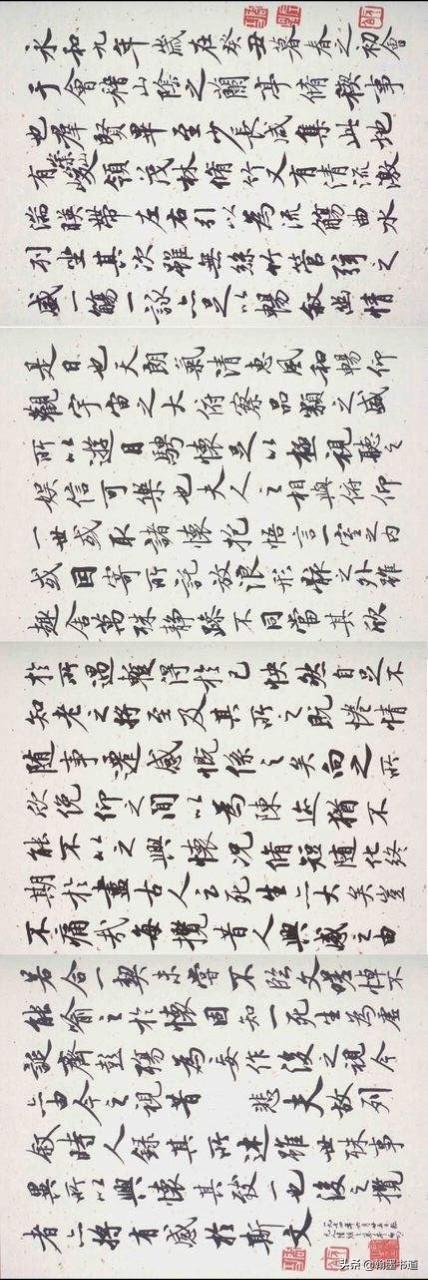 永和九年歲在癸丑暮春之初會
于會稽山陰之蘭亭脩稧事
也羣賢畢至少長咸集此地
有崇山峻領茂林脩竹又有清流激
湍暎帶左右引以為流觴曲水
列坐其次雖無絲竹管弦之
盛一觴一詠亦足以暢敘幽情
是日也天朗氣清惠風和暢仰
觀宇宙之大俯察品類之盛
所以遊目騁懷足以極視聽之
娛信可樂也夫人之相與俯仰
一世或取諸懷抱悟言一室之內
或因寄所託放浪形骸之外雖
趣舍萬殊靜躁不同當其欣
於所遇蹔得於己怏然自足不
知老之將至及其所之既惓情
隨事遷感慨係之矣向之所
欣俛仰之間以為陳迹猶不
能不以之興懷況脩短隨化終
期於盡古人云死生亦大矣豈
不痛哉每攬昔人興感之由
若合一契未嘗不臨文嗟悼不
能喻之於懷固知一死生為虛
誕齊彭殤為妄作後之視今
亦由今之視昔 悲夫故列
敘時人錄其所述雖世殊事
異所以興懷其致一也後之攬
者亦將有感於斯文
头条 @翰墨书道